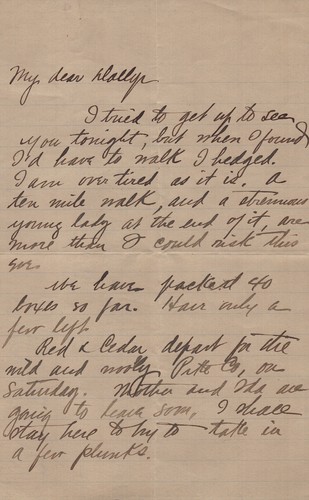 My dear Dollyr
I tried to get up to see
you tonight, but when I found
I'd have to walk I hedged.
I am over tired as it is. a
ten mile walk, and a strenuous
young lady at the end of it, are
more than I could risk this
eve.
We have packed 40
boxes so far. Have only a
few left
Red & Cedar depart for the
wild and wooly Pike Co, on
Saturday. Mother and Ida are
going to leave soon, I shall
stay here to try to take in
a few plunks.